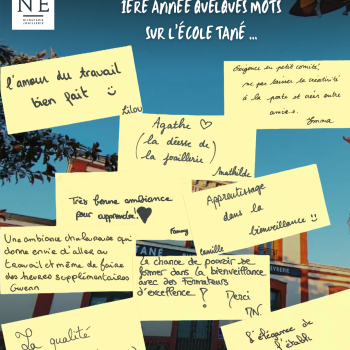 NE
BIJOUTERIE
JOAILLERIE
1ÈRE ANNÉE QUELQUES MOTS
SUR L'ÉCOLE TANÉ ...
l'amour du travail
bien fait
Lilou
Agathe
(la déesse de
la joaillerie)
Mathilde
en petit comité,
ne pas laisser la créativité
à la porte et créer entre
amies.
Emma
Très bonne ambiance
pour apprendre!
Fanny
Apprentissage
dans la
bienveillance
Camille
Une ambiance chaleureuse qui
donne envie d'aller au
travail et même de faire
des heures supplémentaires
Gwenn
TANE
La chance de pouvoir se
former dans la bienveillance
avec des formateurs
d'excellence !
Merci
MN.
La qualité
L'élégance de
l'établi